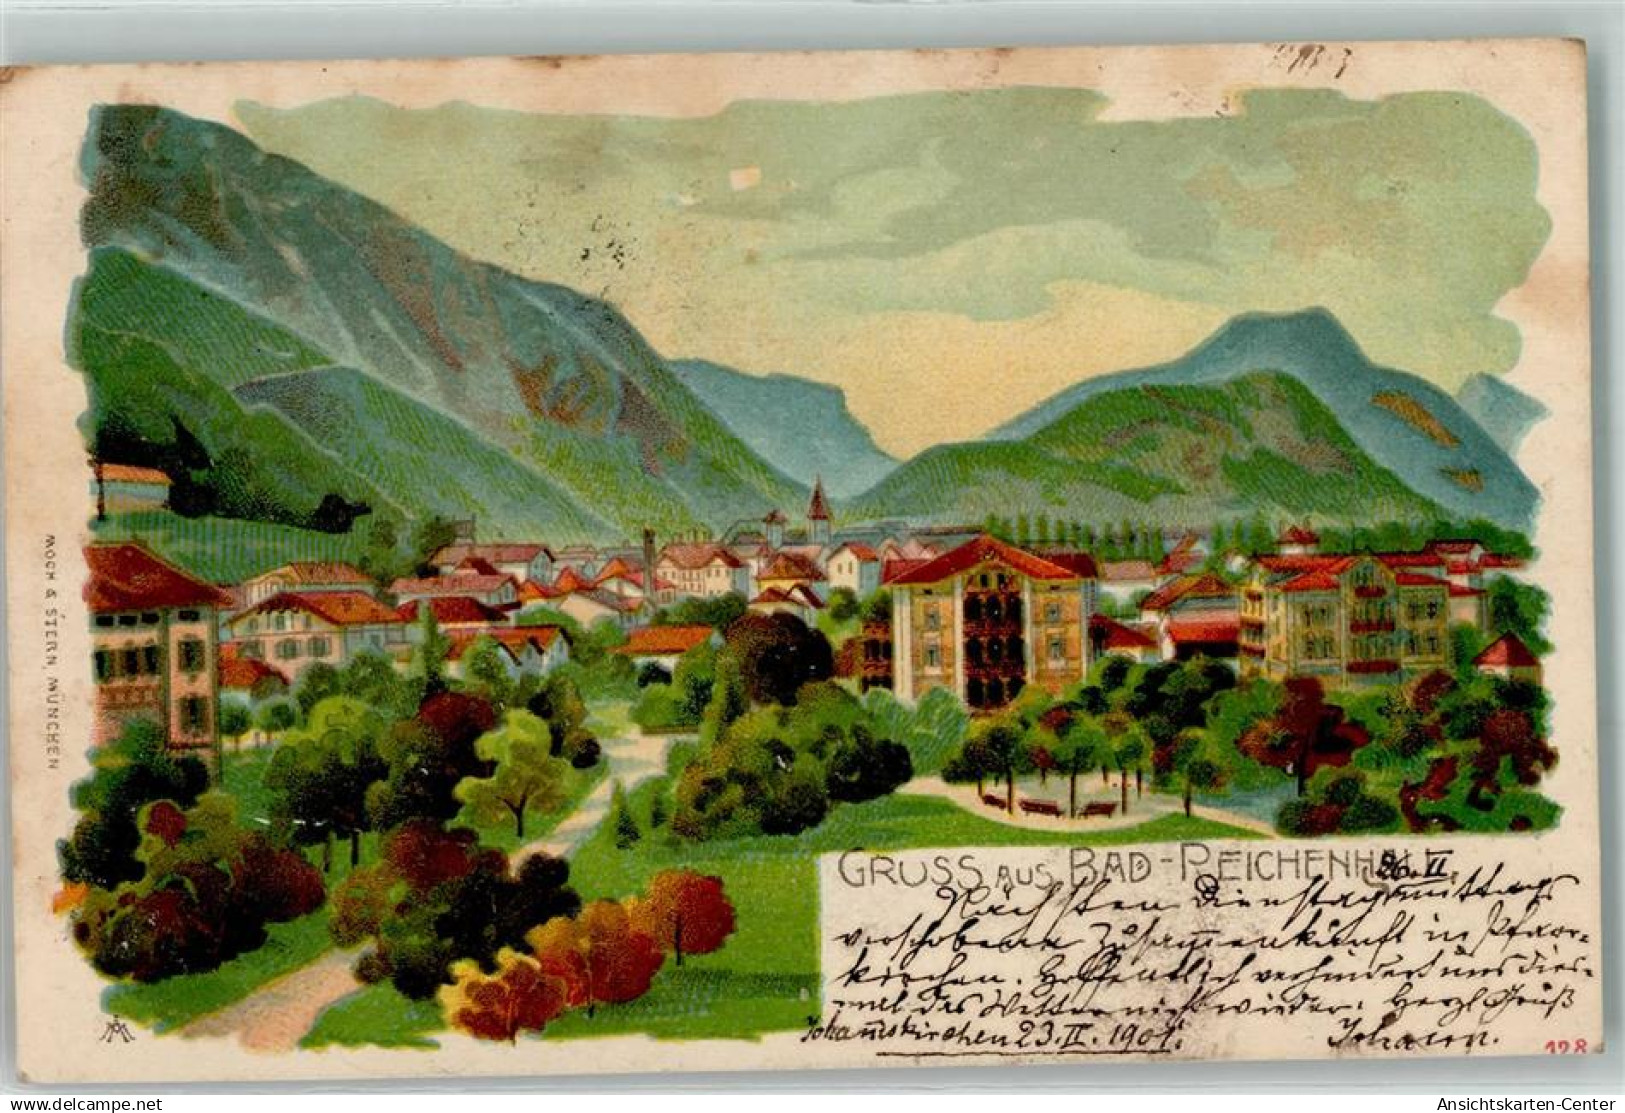 MOCH & STERN, MÜNCHEN
GRUSS AUS BAD-REICHENHALL
26. II.
Nächsten Dienstag mittags
verschobene Zusam̅enkünft in Pfarr-
kirchen. Hoffentlich verhindert uns dies-
mal das Wetter nicht wieder. Herzl. Gruß
Johan̅eskirchen 23. II. 1901. Johann.
128
Ansichtskarten-Center